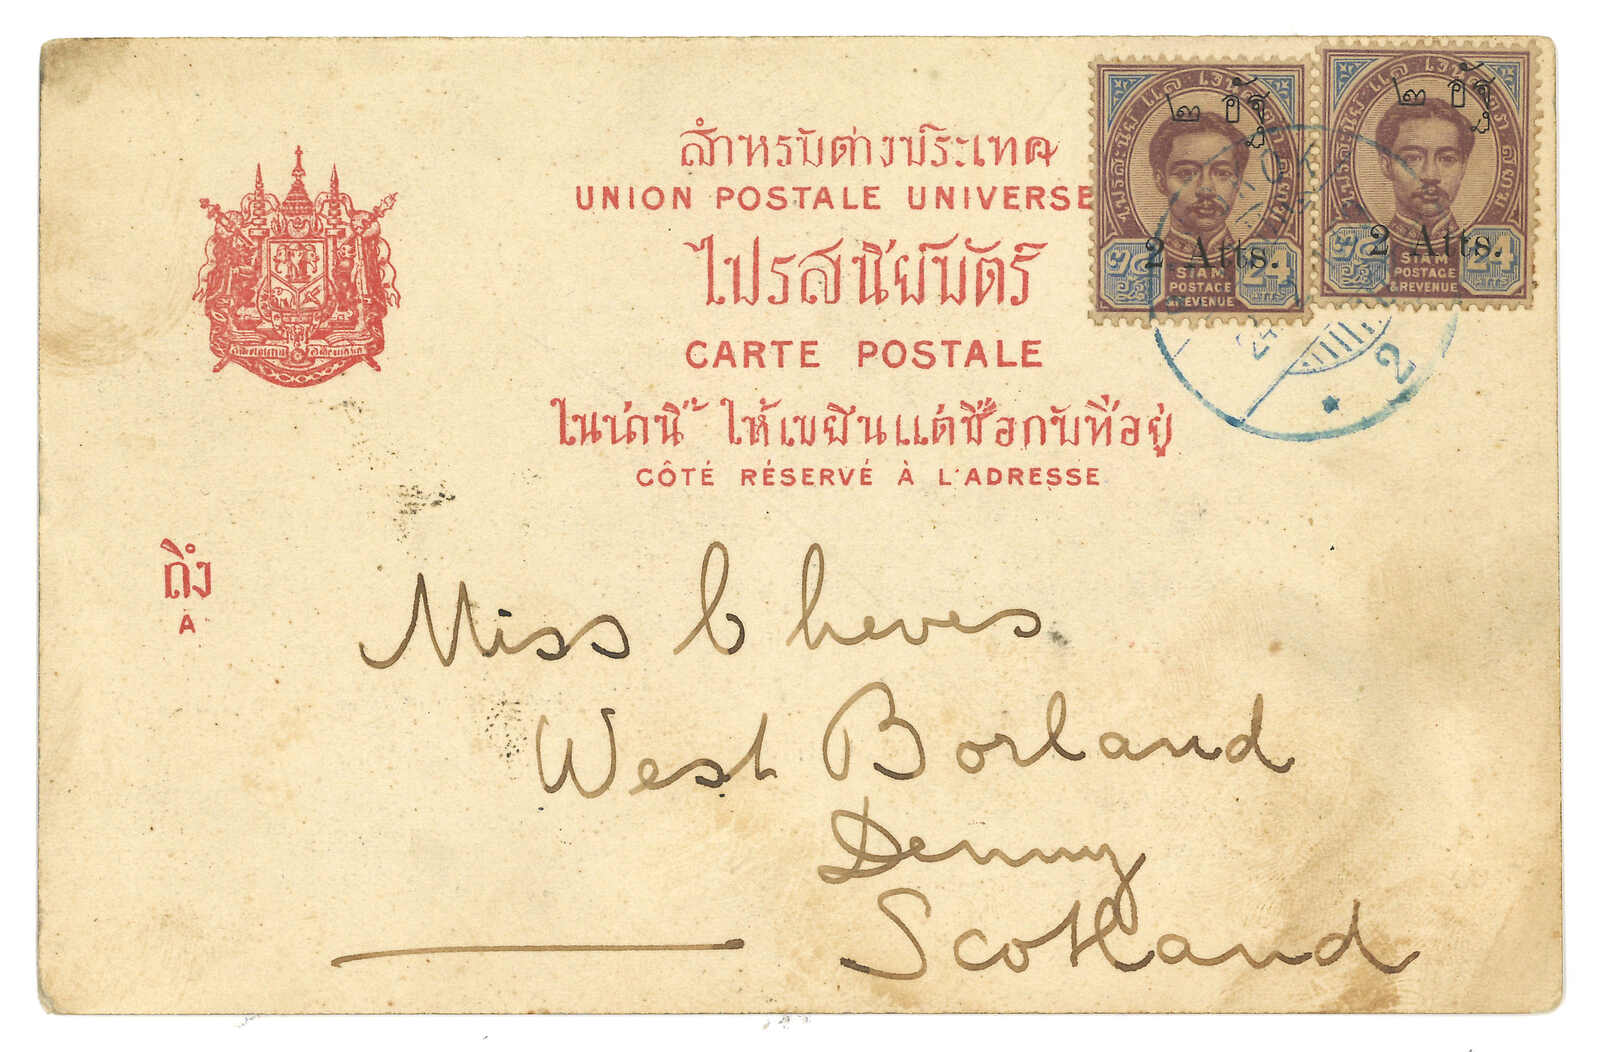 สำหรับต่างประเทศ
UNION POSTALE UNIVERSE
ไปรสนีย์บัตร์
CARTE POSTALE
ในน่านี้ ให้เขียนแต่ชื่อกับที่อยู่
CÔTÉ RÉSERVÉ À L'ADRESSE
ถึง
A
๒ อัฐ
2 Atts.
๒๔
24
SIAM
POSTAGE
& REVENUE
๒ อัฐ
2 Atts.
๒๔
24
SIAM
POSTAGE
& REVENUE
2
Miss Cheves
West Borland
Denny
Scotland